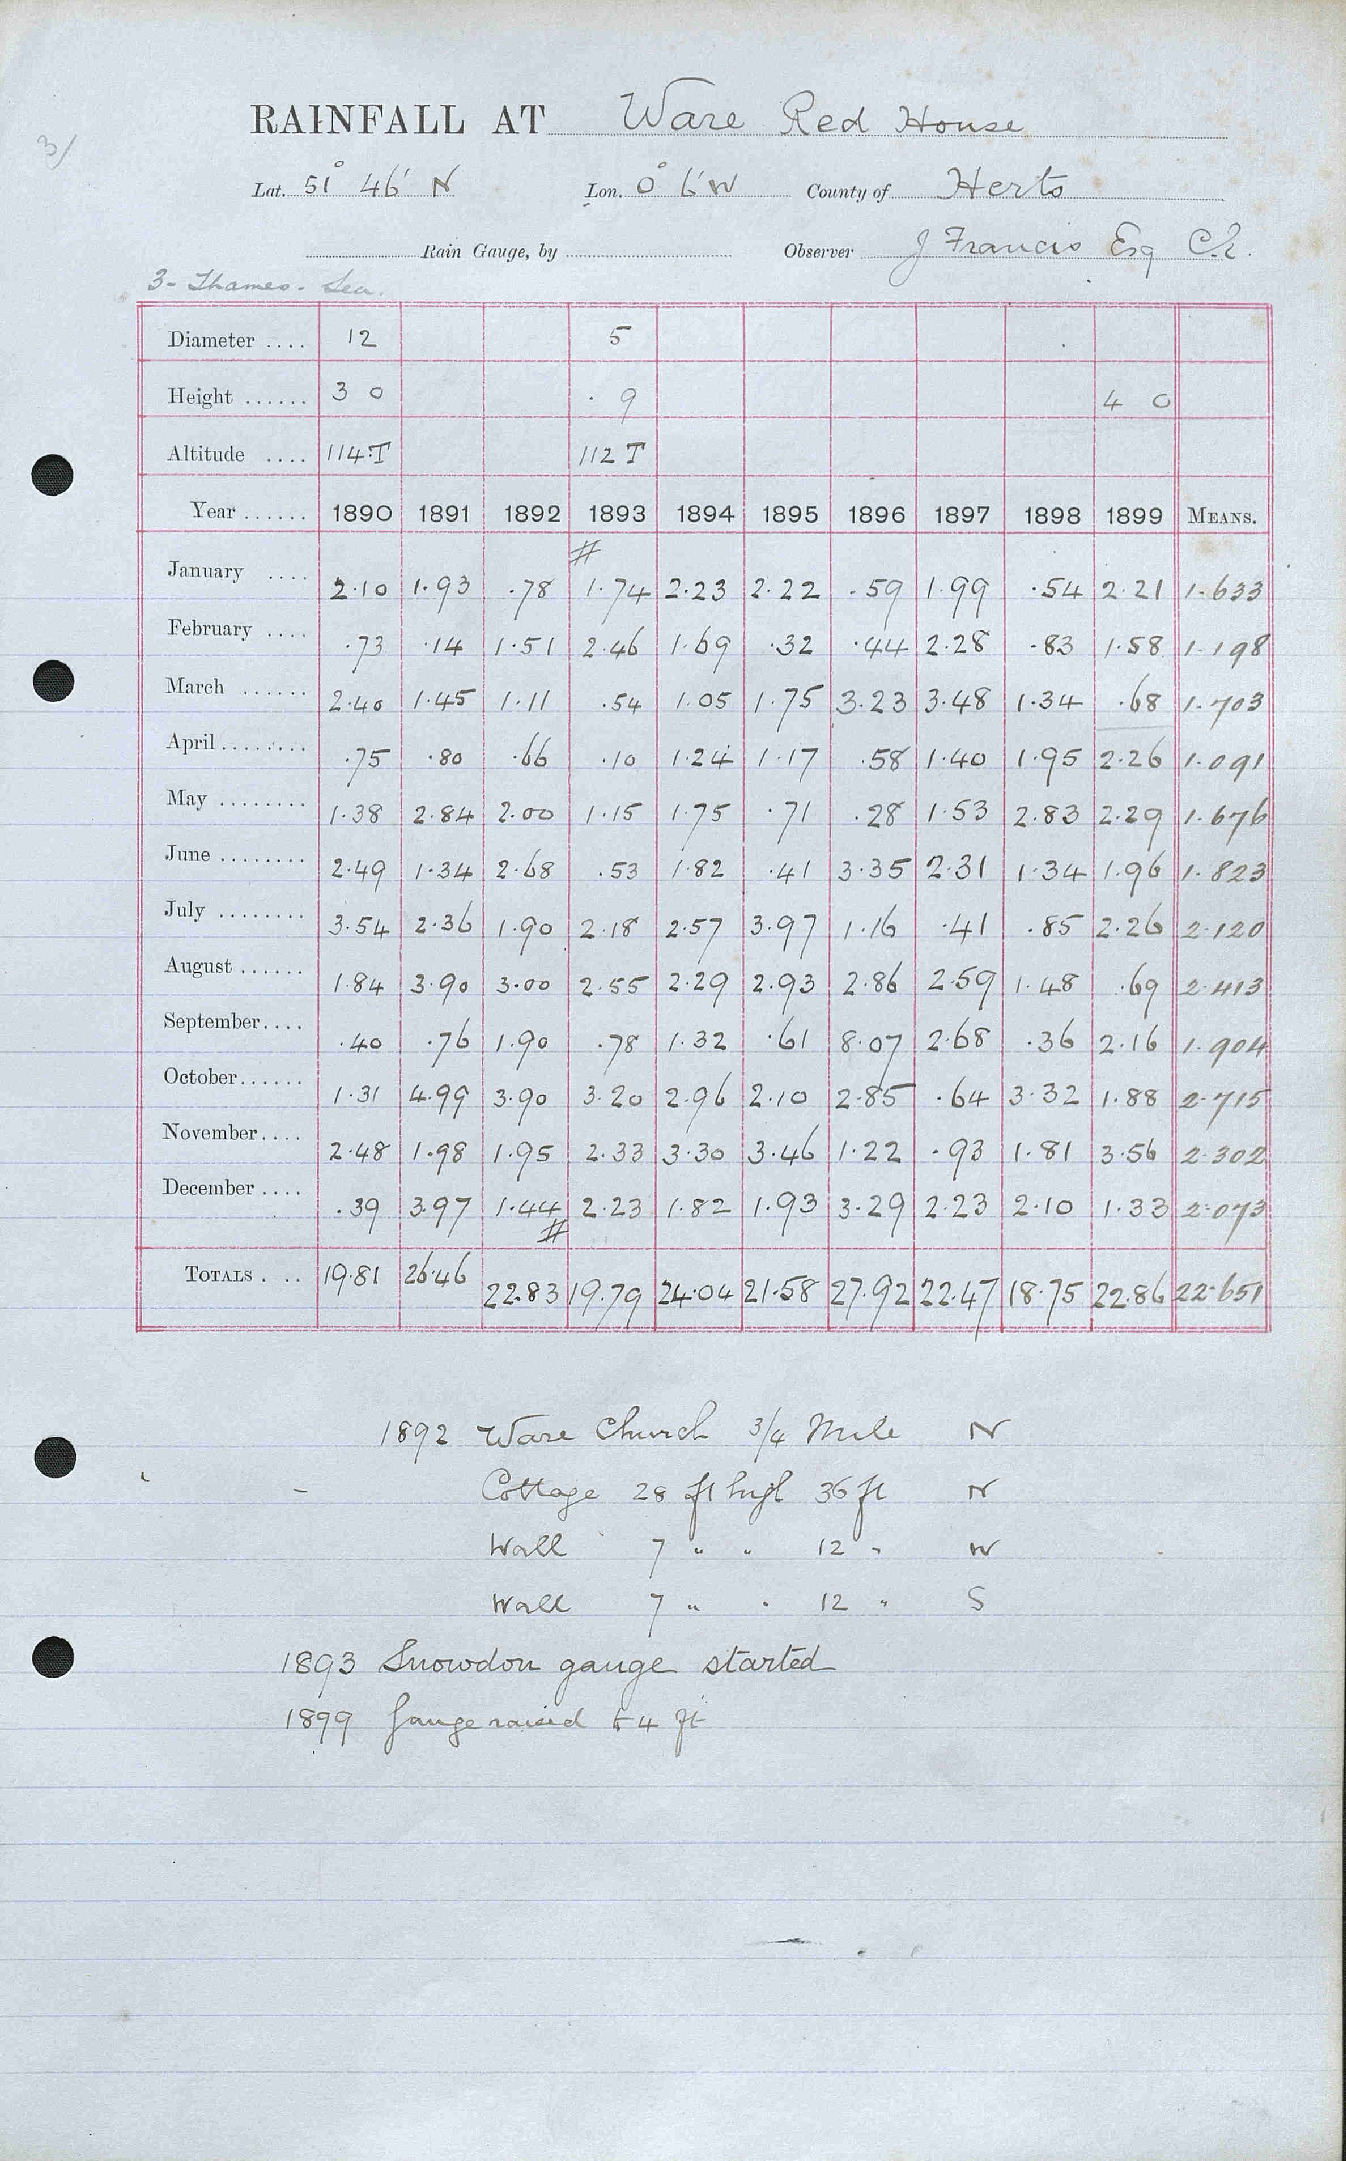 3/
RAINFALL AT Ware Red House
Lat. 51° 46' N Lon. 0° 6' W County of Herts
Rain Gauge, by Observer J Francis Esq C.E.
3 - Thames - Lea.
Diameter .... 12 5
Height ...... 3 0 . 9 4 0
Altitude .... 114.T 112 T
Year ...... 1890 1891 1892 1893 1894 1895 1896 1897 1898 1899 MEANS.
#
January .... 2.10 1.93 .78 1.74 2.23 2.22 .59 1.99 .54 2.21 1.633
February .... .73 .14 1.51 2.46 1.69 .32 .44 2.28 .83 1.58 1.198
March ...... 2.40 1.45 1.11 .54 1.05 1.75 3.23 3.48 1.34 .68 1.703
April ........ .75 .80 .66 .10 1.24 1.17 .58 1.40 1.95 2.26 1.091
May ........ 1.38 2.84 2.00 1.15 1.75 .71 .28 1.53 2.83 2.29 1.676
June ........ 2.49 1.34 2.68 .53 1.82 .41 3.35 2.31 1.34 1.96 1.823
July ........ 3.54 2.36 1.90 2.18 2.57 3.97 1.16 .41 .85 2.26 2.120
August ...... 1.84 3.90 3.00 2.55 2.29 2.93 2.86 2.59 1.48 .69 2.413
September.... .40 .76 1.90 .78 1.32 .61 8.07 2.68 .36 2.16 1.904
October...... 1.31 4.99 3.90 3.20 2.96 2.10 2.85 .64 3.32 1.88 2.715
November.... 2.48 1.98 1.95 2.33 3.30 3.46 1.22 .93 1.81 3.56 2.302
December .... .39 3.97 1.44 2.23 1.82 1.93 3.29 2.23 2.10 1.33 2.073
#
TOTALS . .. 19.81 26.46 22.83 19.79 24.04 21.58 27.92 22.47 18.75 22.86 22.651
1892 Ware Church 3/4 Mile N
Cottage 28 ft high 36 ft N
Wall 7 " " 12 " W
Wall 7 " " 12 " S
1893 Snowdon gauge started
1899 Gauge raised to 4 ft